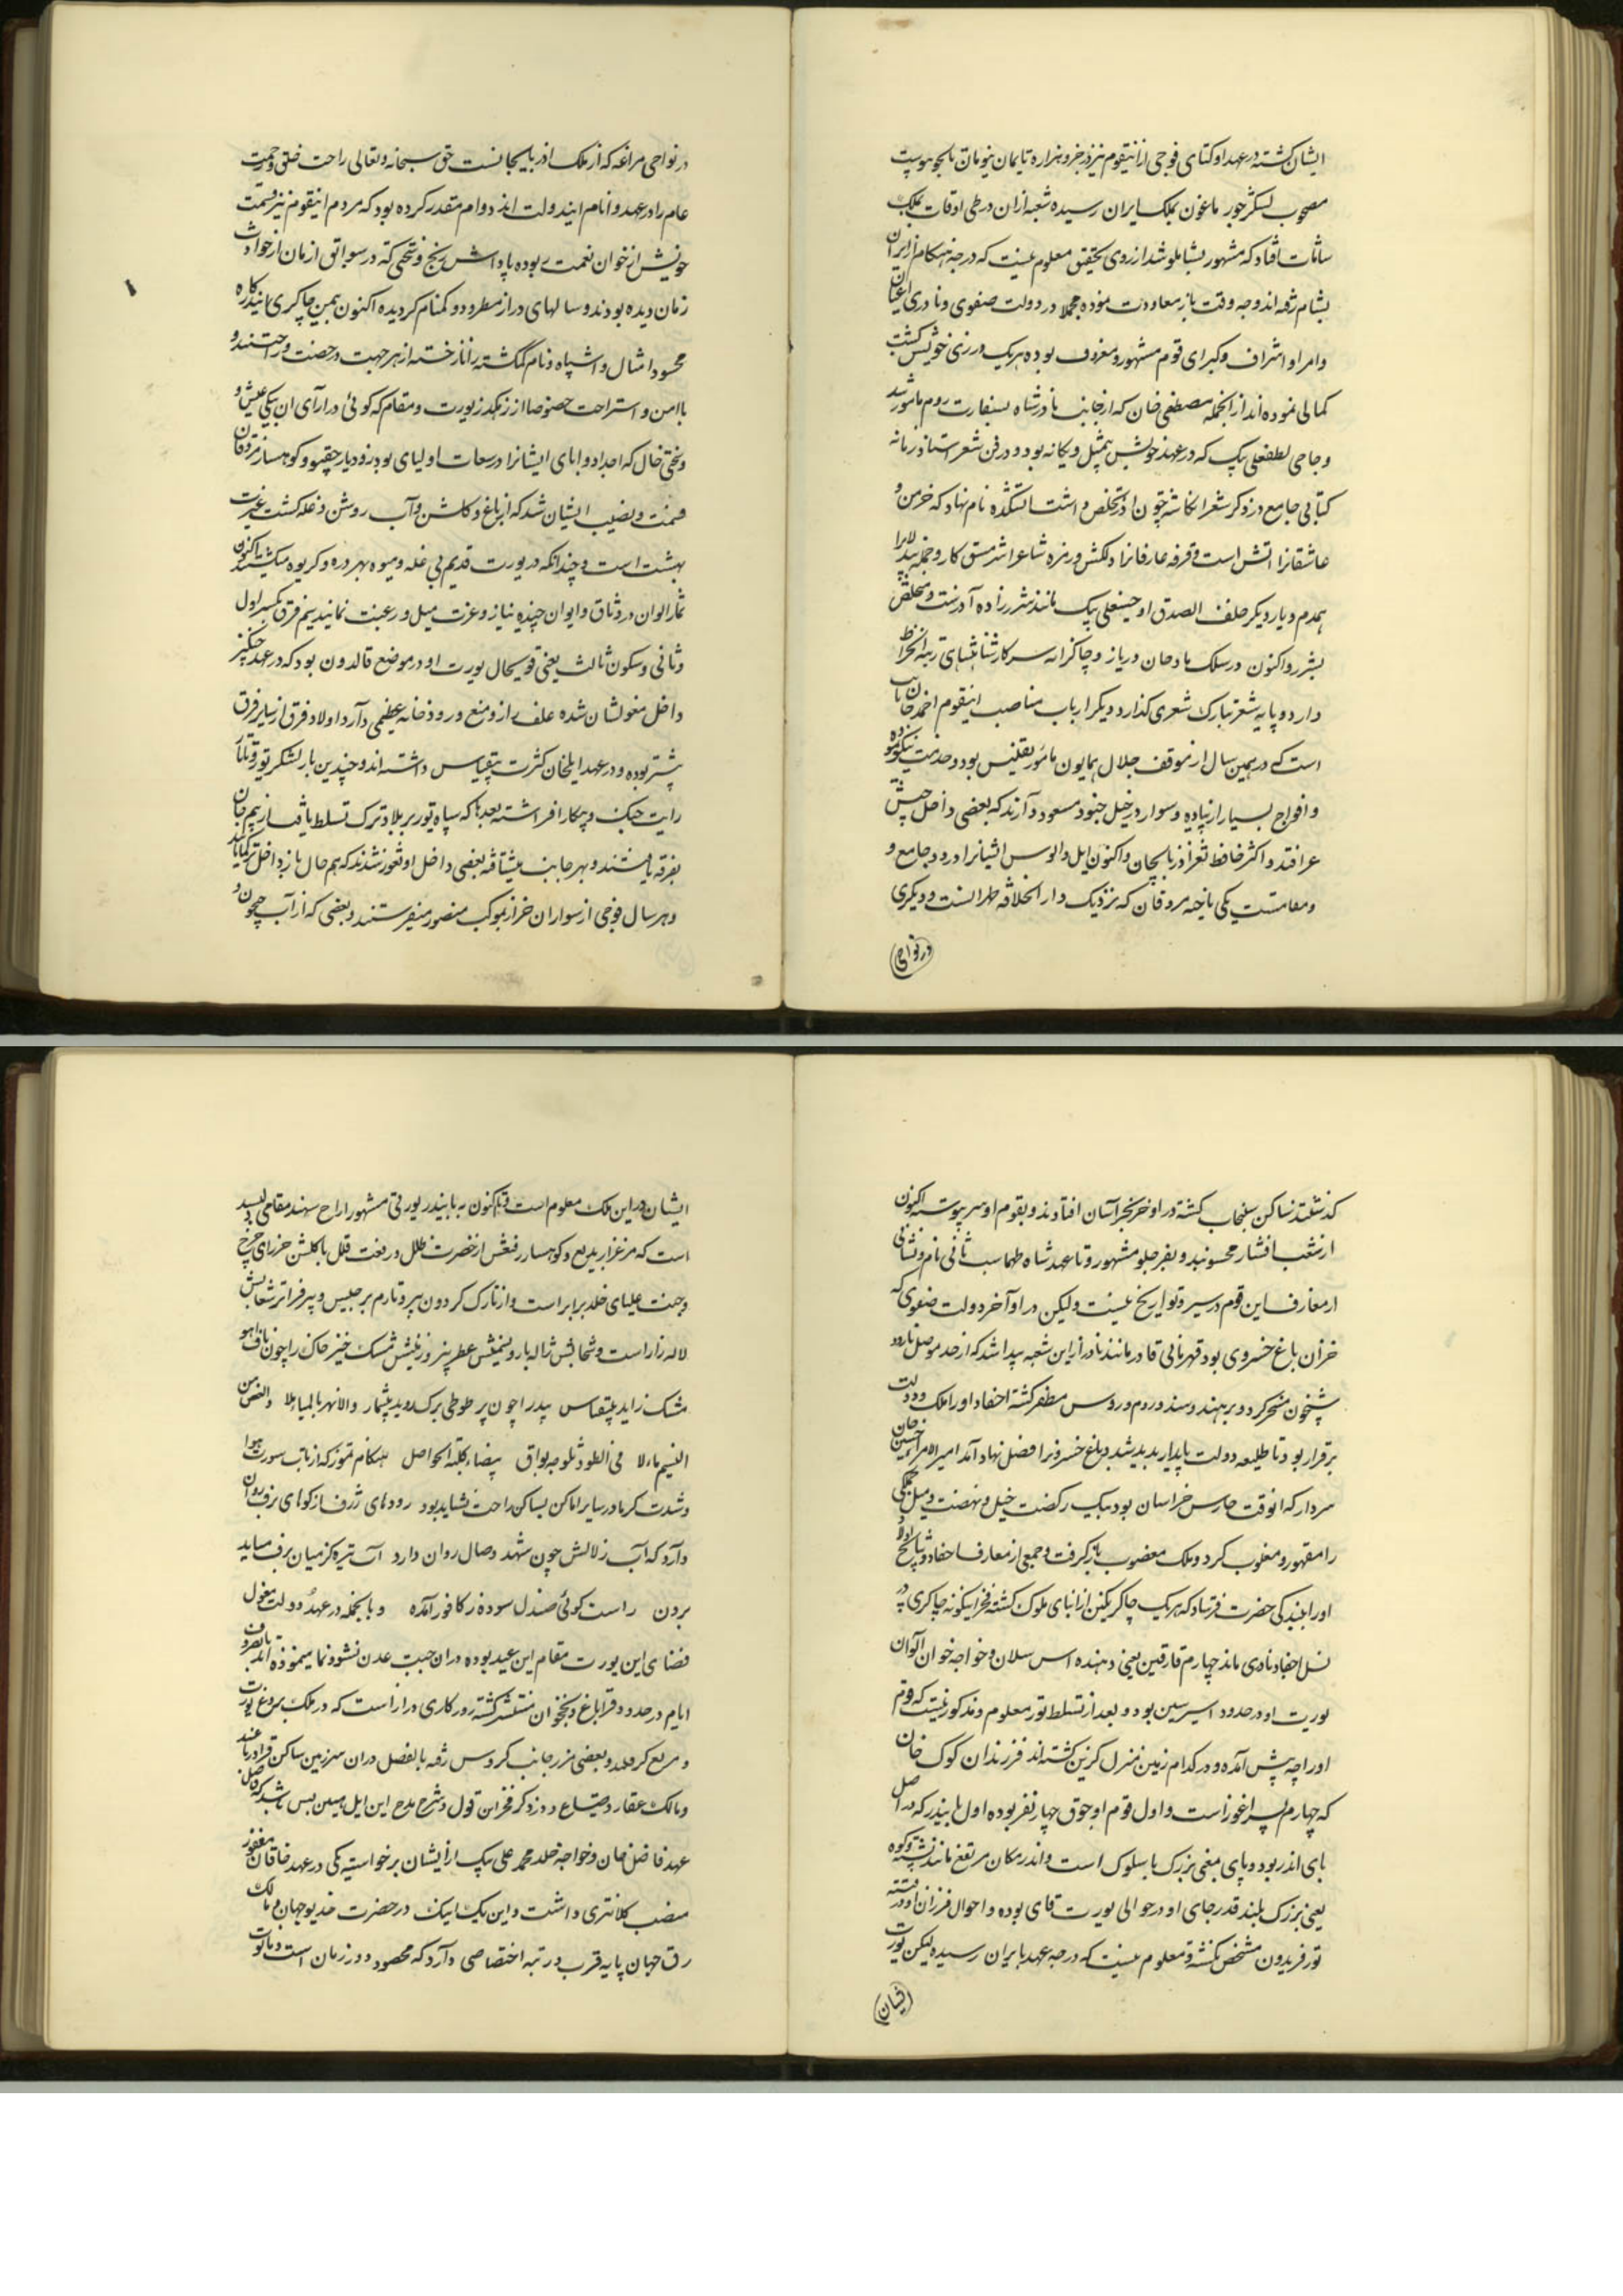 ایشان گشته در عهد اوکتای فوجی از اینقوم نیز در جزو هزاره تایمان بنویان تایجو پیوست
مصحوب لشکر جورماغون بملک ایران رسیده شعبه ازان در طی اوقات بملک
شامات افتاد که مشهور بشاملو شد از روی تحقیق معلوم نیست که در چه هنگام از ایران
بشام رفته اند و چه وقت باز معاودت نموده مجملا در دولت صفوی و نادری اعیان
و امرا و اشراف و کبرای قوم مشهور و معروف بوده هر یک در زی خویش کسب
کمالی نموده اند از انجمله مصطفی خان که از جانب نادر شاه بسفارت روم مامور شد
و حاجی لطفعلی بیک که در عهد خویش بیمثیل و یگانه بود و در فن شعر استاد زمانه
کتابی جامع در ذکر شعرا نگاشته چون آذر تخلص داشت آتشکده نام نهاد که خرمن
عاشقانرا آتش است و قرفه عارفانرا دلکش و زمره شاعرانرا مشق کار و خمخانه
همدم و یار دیگر خلف الصدق او حسینعلی بیک مانند شرر زاده آذرست و متخلص
بشرر و اکنون در سلک مادحان دربار و چاکران سرکار شاهنشاهی رتبه انخراط
دارد و پایه شعر تبارک شعری گذارد دیگر ارباب مناصب اینقوم احمد خان نایب
است که در همین سال از موقف جلال همایون مامور تفلیس بود و خدمت نیکو نموده
و افواج بسیار از پیاده و سوار در خیل جنود مسعود دارند که بعضی داخل جیش
عراقند و اکثر حافظ ثغر آذربایجان و اکنون ایل و الوس ایشانرا دو رود جامع و
و مقامست یکی ناحیه مزدقان که نزدیک دار الخلافه طهرانست و دیگری
در نواحی
در نواحی مراغه که از ملک آذربایجانست حق سبحانه و تعالی راحت خلق و رحمت
عام را در عهد و انام ایندولت ابد دوام مقدر کرده بود که مردم اینقوم نیز قسمت
خویش از خوان نعمت ربوده پاداش رنج و سختی که در سوابق ازمان از حوادث
زمان دیده بودند و سالهای دراز مطرود و گمنام گردیده اکنون بیمن چاکری اینداره
محسود امثال و اشباه و نام گمگشته را تازه ساخته از هر جهت در حضنت و راحتند و
با امن و استراحت خصوصا از رهگذر یورت و مقام که گوئی در ازای آن بیکی عیش و
و سختی حال که اجداد و ابای ایشانرا در ساعات اولیای بود رود یار جقتو و کوهسار مزدقان
قسمت و نصیب ایشان شد که از باغ و گلشن و آب روشن و غله کشت غیرت
بهشت است و چندانکه در یورت قدیم بی غله و میوه بهر دره و گریوه میگشتند اکنون
ثمار الوان در وثاق و ایوان چیده نیاز و عزت میل و رغبت نمایند پنجم قرق بکسر اول
و ثانی و سکون ثالث یعنی قوی حال یورت او در موضع قالدون بود که در عهد چنگیز
داخل مغولشان شده علف زار وسیع و رودخانه عظیمی دارد اولاد قرق از سایر فرق
بیشتر بوده و در عهد ایلخان کثرت بیقیاس داشته اند و چندین بار لشکر تور و تاتار
رایت جنگ و پیکار افراشته بعدها که سپاه تور بر بلاد ترک تسلط یافت از بیم جان
بفرقه یاستند و بهر جانب شتافته بعضی داخل اوغوز شدند که هم حال باز داخل ترکمانند
و هر سال فوجی از سواران خزاز بموکب منصور میفرستند و بعضی که از آب جیحون
گذشتند ساکن سنجاب گشته در اواخر بخراسان افتادند و بقوم اوسر پیوسته اکنون
از شعب افشار محسوبند و بقرخلو مشهور و تا عهد شاه طهماسب ثانی نام و نشانی
از معارف این قوم در سیر و تواریخ نیست و لیکن در اواخر دولت صفوی که
خزان باغ خسروی بود قهرمانی قادر مانند نادر از این شعبه پیدا شد که از حد موصل تا رود
شیخون مسخر کرد و بر هند و سند و روم و روس مظفر گشته احفاد او را ملک و دولت
برقرار بود تا طلیعه دولت پایدار پدید شد و باغ خسرویرا فصل بهار آمد امیر الامرا حسین خان
سردار که انوقت حارس خراسان بود بیک رکضت خیل و نهضت و میل جملگی
را مقهور و مغلوب کرد و ملک مغصوب باز گرفت و جمعی از معارف احفاد و مشایخ اولاد
او را ببندگی حضرت فرستاد که هر یک چاکر یکتن از ابنای ملوک گشته فخر اینگونه چاکری در
نسل احفاد نادری ماند چهارم قارقین یعنی دهنده آش سلان و خواجه خوان الوان
یورت او در حدود اسیر سین بود و بعد از تسلط تور معلوم و مذکور نیست که قوم
او را چه پیش آمده و در کدام زمین منزل گزین گشته اند فرزندان کوک خان
که چهارم پسر اغوز است و اول قوم او جوق چهار نفر بوده اول بایندر که در اصل
بای اندر بود و بای بمعنی بزرگ با سلوک است و اندر مکان مرتفع مانند پشته و کوه
یعنی بزرگ بلند قدر جای او در حوالی یورت قای بوده و احوال فرزندان او در فتنه
تور فریدون مشخص نگشته و معلوم نیست که در چه عهد بایران رسیده لیکن یورت
ایشان
ایشان در این ملک معلوم است و تا کنون به بایندر یورتی مشهور اراج سهند مقامی دلپسند
است که مرغزار بدیع و کوهسار رفیعش از خضرت ظلل و رفعت قلل با گلشن خضرای چرخ
و جنت علیای خلد برابر است و از تارک گردون پیر و تارم برجیس و تیر فراتر شعابش
لاله زار است و سحابش ژاله بار و نسیمش عطر بیز و زمینش مشک خیز خاک را چون ناف آهو
مشک زاید بیقیاس بید را چون پر طوطی برگ روید بیشمار والانهر بالمیاه ملا والغصن من
النسیم مایلا فی الطود ثلوجه بواق بیضاء کقلة الحواصل هنگام تموز که از تاب سورت هوا
و شدت گرما در سایر اماکن بساکن راحت نشاید بود رودهای ژرف از کوهای برف روان
دارد که آب زلالش چون شهد وصال روان دارد آب تیره کز میان برف میاید
برون راست گوئی صندل سوده ز کافور آمده و بالجمله در عهد دولت مغول
فضای این یورت مقام این عبید بوده در ان جنت عدن نشو و نما مینموده اند بعد
ایام در حدود قراباغ و نخجوان منتشر گشته روزگاری دراز است که در ملک بروع یورت
و مربع کرده اند و بعضی نیز در جانب کروس رفته بالفعل در ان سرزمین ساکن قرا و رباعند
و مالک عقار و ضیاع و در ذکر فخر این قول و شرح مدح این ایل همین بس باشد که فاضل
عهد فاضل خان و خواجه خلد محمد علی بیک از ایشان برخواسته یکی در عهد خاقان مغفور
منصب کلانتری داشت و این یک اینک در حضرت خدیو جهان و مالک
رق جهان پایه قرب و رتبه اختصاصی دارد که محسود دور زمان است و مات